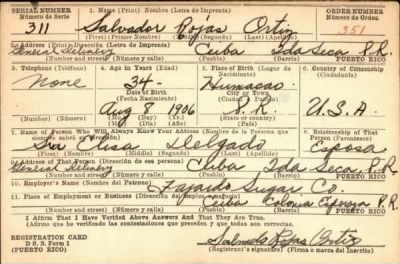 SERIAL NUMBER 1. Name (Print) Nombre (Letra de Imprenta) ORDER NUMBER
Número de Serie Número de Orden
311 Salvador Rojas Ortiz 351
(First) (Primer Nombre) (Middle) (Segundo Nombre) (Last) (Apellido)
2. Address (Print) Dirección (Letra de Imprenta)
General Delivery Cuba Ida Seca P.R.
Number and Street (Número y calle) (Town) (Pueblo) (County) (Barrio) PUERTO RICO
3. Telephone (Teléfono) 4. Age in Years (Edad) 5. Place of Birth (Lugar de Nacimiento) 6. Country of Citizenship (Ciudadanía)
None 34 Humacao
Date of Birth City or Town
(Fecha Nacimiento) (Ciudad)
Aug 8 1906 P.R. U.S.A
State or country
(Mo.) (Day) (Yr.) (Estado o país)
7. Name of Person Who Will Always Know Your Address (Nombre de la Persona que siempre sabrá 8. Relationship of That Person (Parentesco)
Sra Delgado Esposa
(First) (Nombre) (Last) (Apellido)
9. Address of That Person (Dirección de esa persona)
General Delivery Cuba Ida Seca P.R.
Number and Street (Número y calle) (Town) (Pueblo) (County) (Barrio) PUERTO RICO
10. Employer's Name (Nombre del Patrono)
Fajardo Sugar Co.
11. Place of Employment or Business (Dirección del empleo)
Cuba Colonia P.R.
Number and Street (Número y calle) (Town) (Pueblo) (County) (Barrio) PUERTO RICO
I Affirm That I Have Verified Above Answers And That They Are True.
Afirmo que he verificado las contestaciones que preceden y que todas son correctas.
REGISTRATION CARD
D S S. Form 1 Salvador Rojas Ortiz
(PUERTO RICO) (Registrant's signature) (Firma o marca del Inscrito)